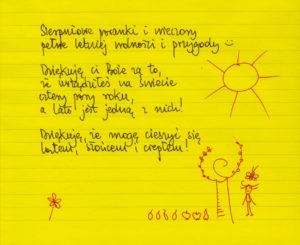 Sierpniowe poranki i wieczory
pełne letniej wolności i przygody
Dziękuję ci Boże za to,
że urządziłeś na świecie
cztery pory roku,
a lato jest jedną z nich!
Dziękuję, że mogę cieszyć się
latem, słońcem i ciepłem!